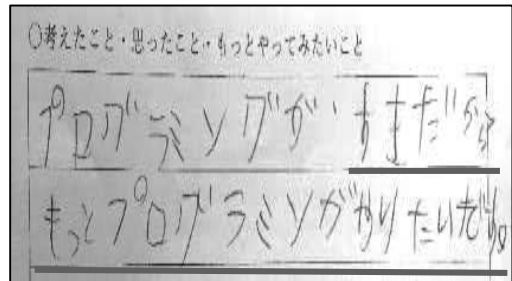 ○考えたこと・思ったこと・もっとやってみたいこと
プログラミングが すきだから
もっとプログラミングがやりたいだ。